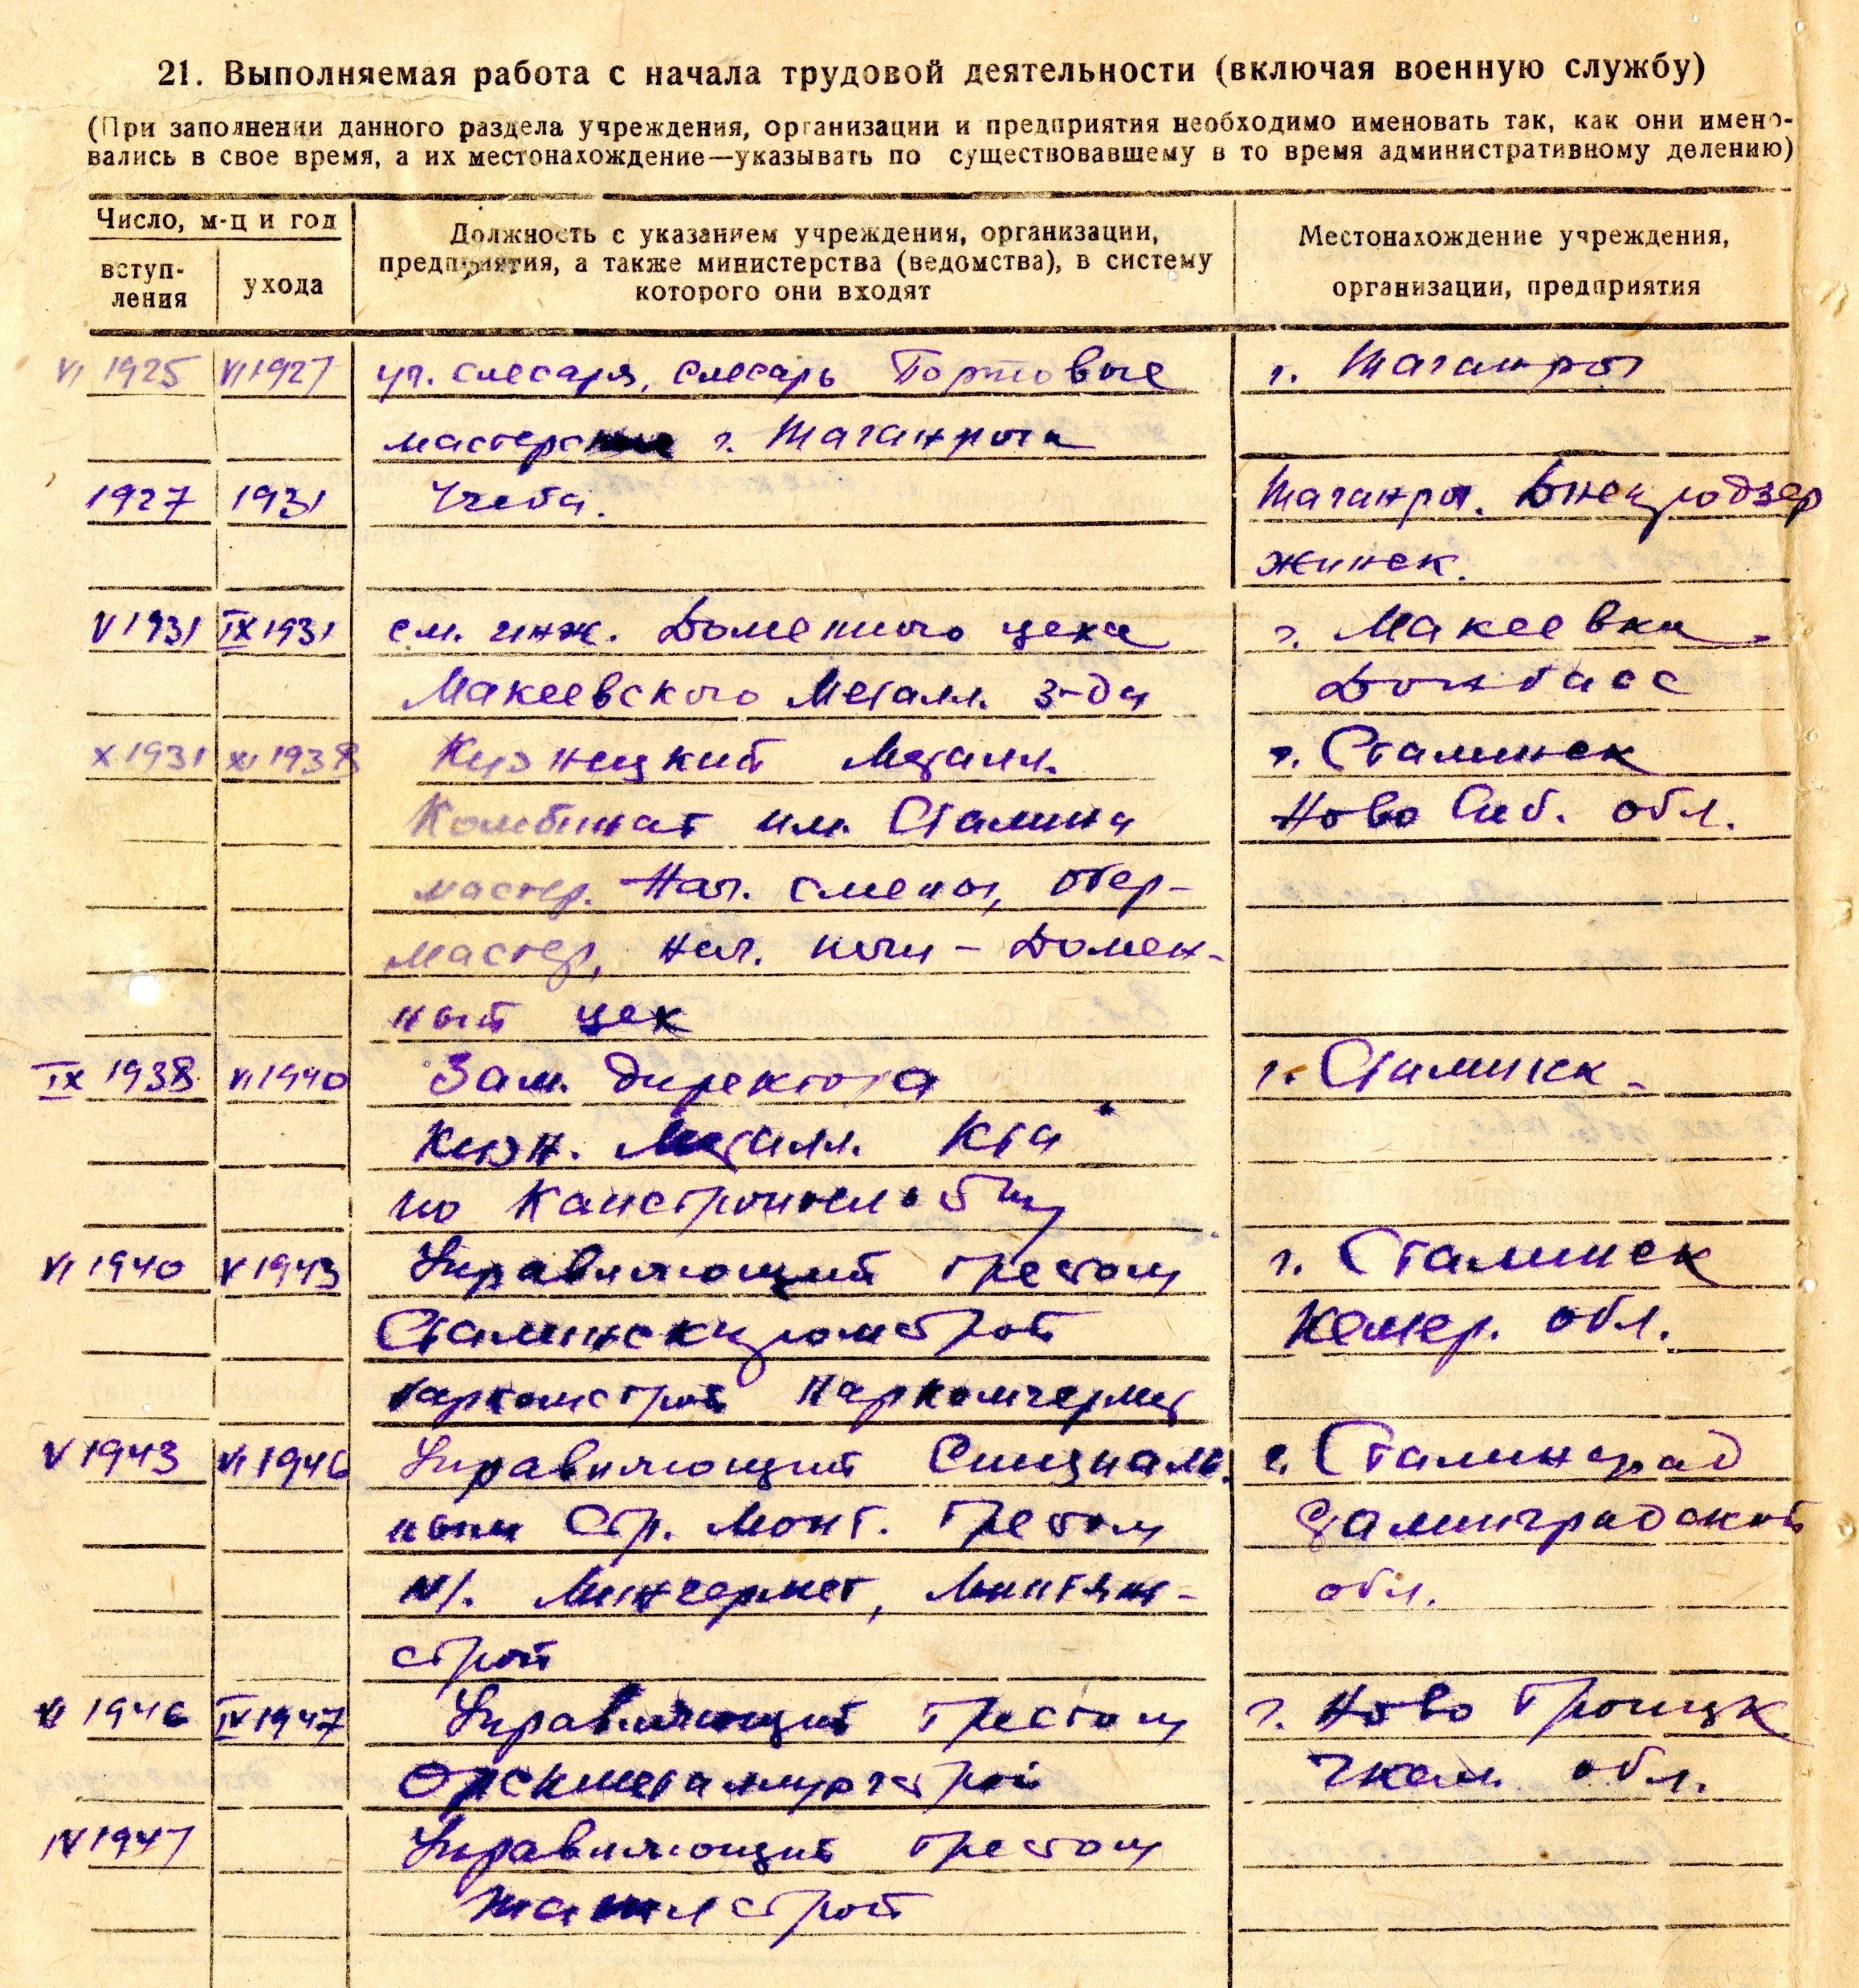 21. Выполняемая работа с начала трудовой деятельности (включая военную службу)
(При заполнении данного раздела учреждения, организации и предприятия необходимо именовать так, как они имено-
вались в свое время, а их местонахождение—указывать по существовавшему в то время административному делению)
Число, м-ц и год
вступ-
ления
ухода
Должность с указанием учреждения, организации,
предприятия, а также министерства (ведомства), в систему
которого они входят
Местонахождение учреждения,
организации, предприятия
VI 1925 VI 1927 уч. слесаря, слесарь Портовые г. Таганрог
мастерские г. Таганрога
1927 1931 Учеба. Таганрог. Днепродзер
жинск.
V 1931 IX 1931 см. инж. Доменного цеха г. Макеевка
Макеевского Металл. З-да Донбасс
X 1931 XI 1938 Кузнецкий Металл. г. Сталинск
Комбинат им. Сталина Ново Сиб. обл.
мастер. Нач. смены, обер-
мастер, нач. печи - Домен-
ный цех
IX 1938 VI 1940 Зам. директора г. Сталинск
Кузн. Металл. К-та
по Капстроительству
VI 1940 V 1943 Управляющий трестом г. Сталинск
Сталинскпромстрой Кемер. обл.
Наркомстрой Наркомчермет
V 1943 VI 1946 Управляющий Специаль- г. Сталинград
ным Стр. Монт. Трестом Сталинградской
Минчермет, Минтяж- обл.
строй
VI 1946 IV 1947 Управляющий трестом г. Ново Троицк
Орскметаллургстрой Чкал. обл.
IV 1947 Управляющий трестом